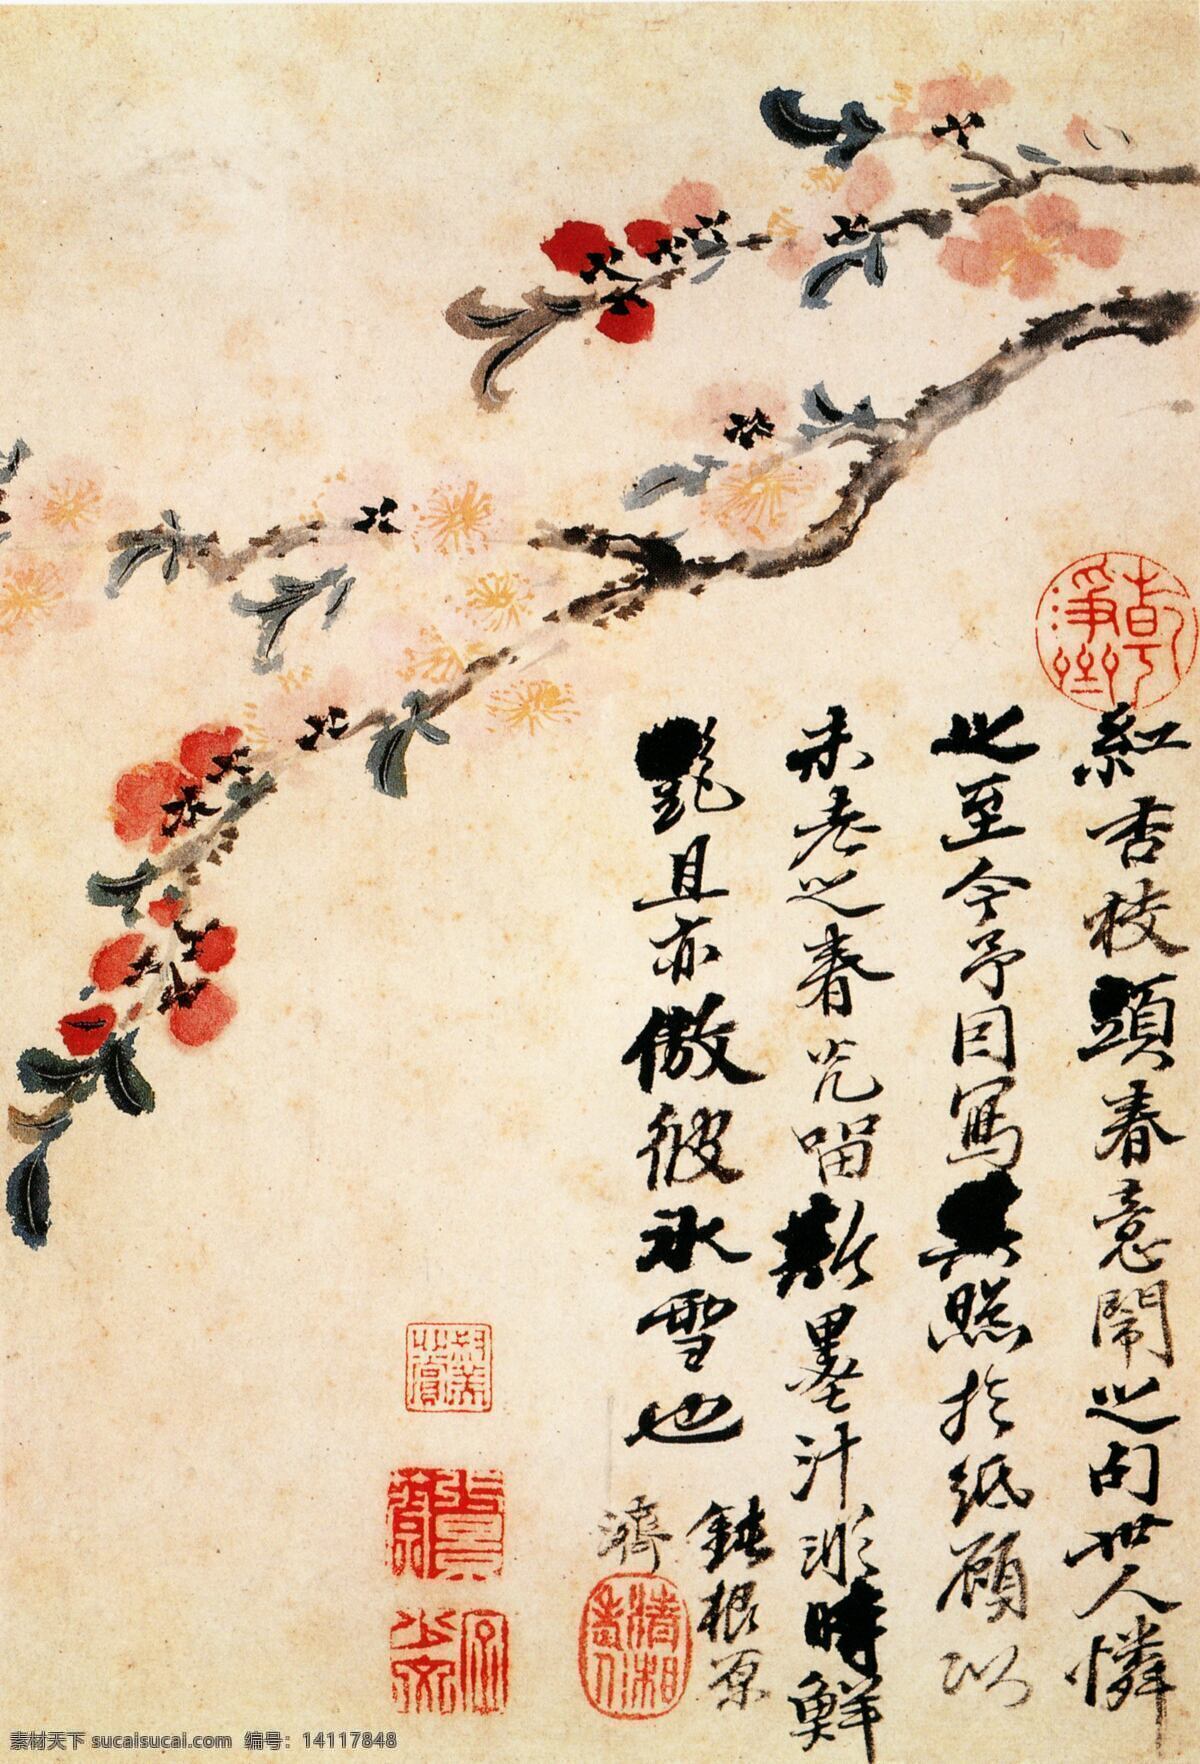 紅杏枝頭春意鬧之句世人憐
之至今予因寫其照於紙顧以
未老之春光留斯墨汁時鮮
艷且亦傲彼冰雪也
鈍根原
濟
清湘老人
素材天下 sucaisucai.com 编号：14117848